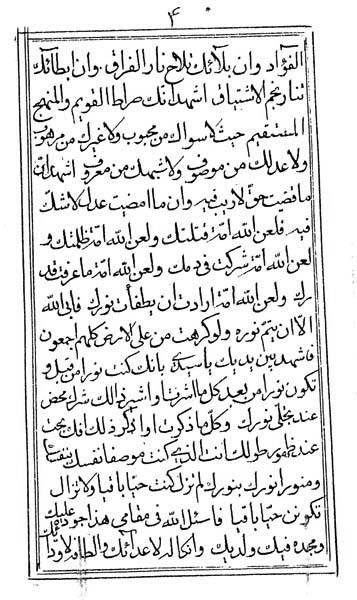 ٤
الفؤاد وان بلائك تلاح نار الفراق وان ابطائك
تنار نجم الاشتياق اشهد انك صراط القويم والمنهج
المستقيم حيث لا سواك من محبوب ولا غيرك من مرهوب
ولا عدلك من موصوف ولا شبهك من معروف اشهد ان
ما قضيت حق لا ريب فيه وان ما امضيت عدل لا شك
فيه فلعن الله امة قتلتك ولعن الله امة ظلمتك و
لعن الله امة شركت في دمك ولعن الله امة ما عرفت قد
رك ولعن الله امة ارادت ان يطفأت نورك فابى الله
الا ان يتم نوره ولو كرهت من على الارض كلهم اجمعون
فاشهد بين يديك يا سيدي بانك كنت نورا من قبل و
تكون نورا من بعد كل ما اشرت واشير ذالك شرك محض
عند تجلي نورك وكل ما ذكرت او اذكر ذلك افك بحت
عند ظهور طولك انت الذي كنت موصفا نفسك بنفسك
ومنورا نورك بنورك لم تزل كنت حيا باقيا ولا تزال
تكونن حيا باقيا فاسئل الله في مقامي هذا جود عليك
ومجده فيك ولديك وانكاله لاعدائك والطافه لاودآ